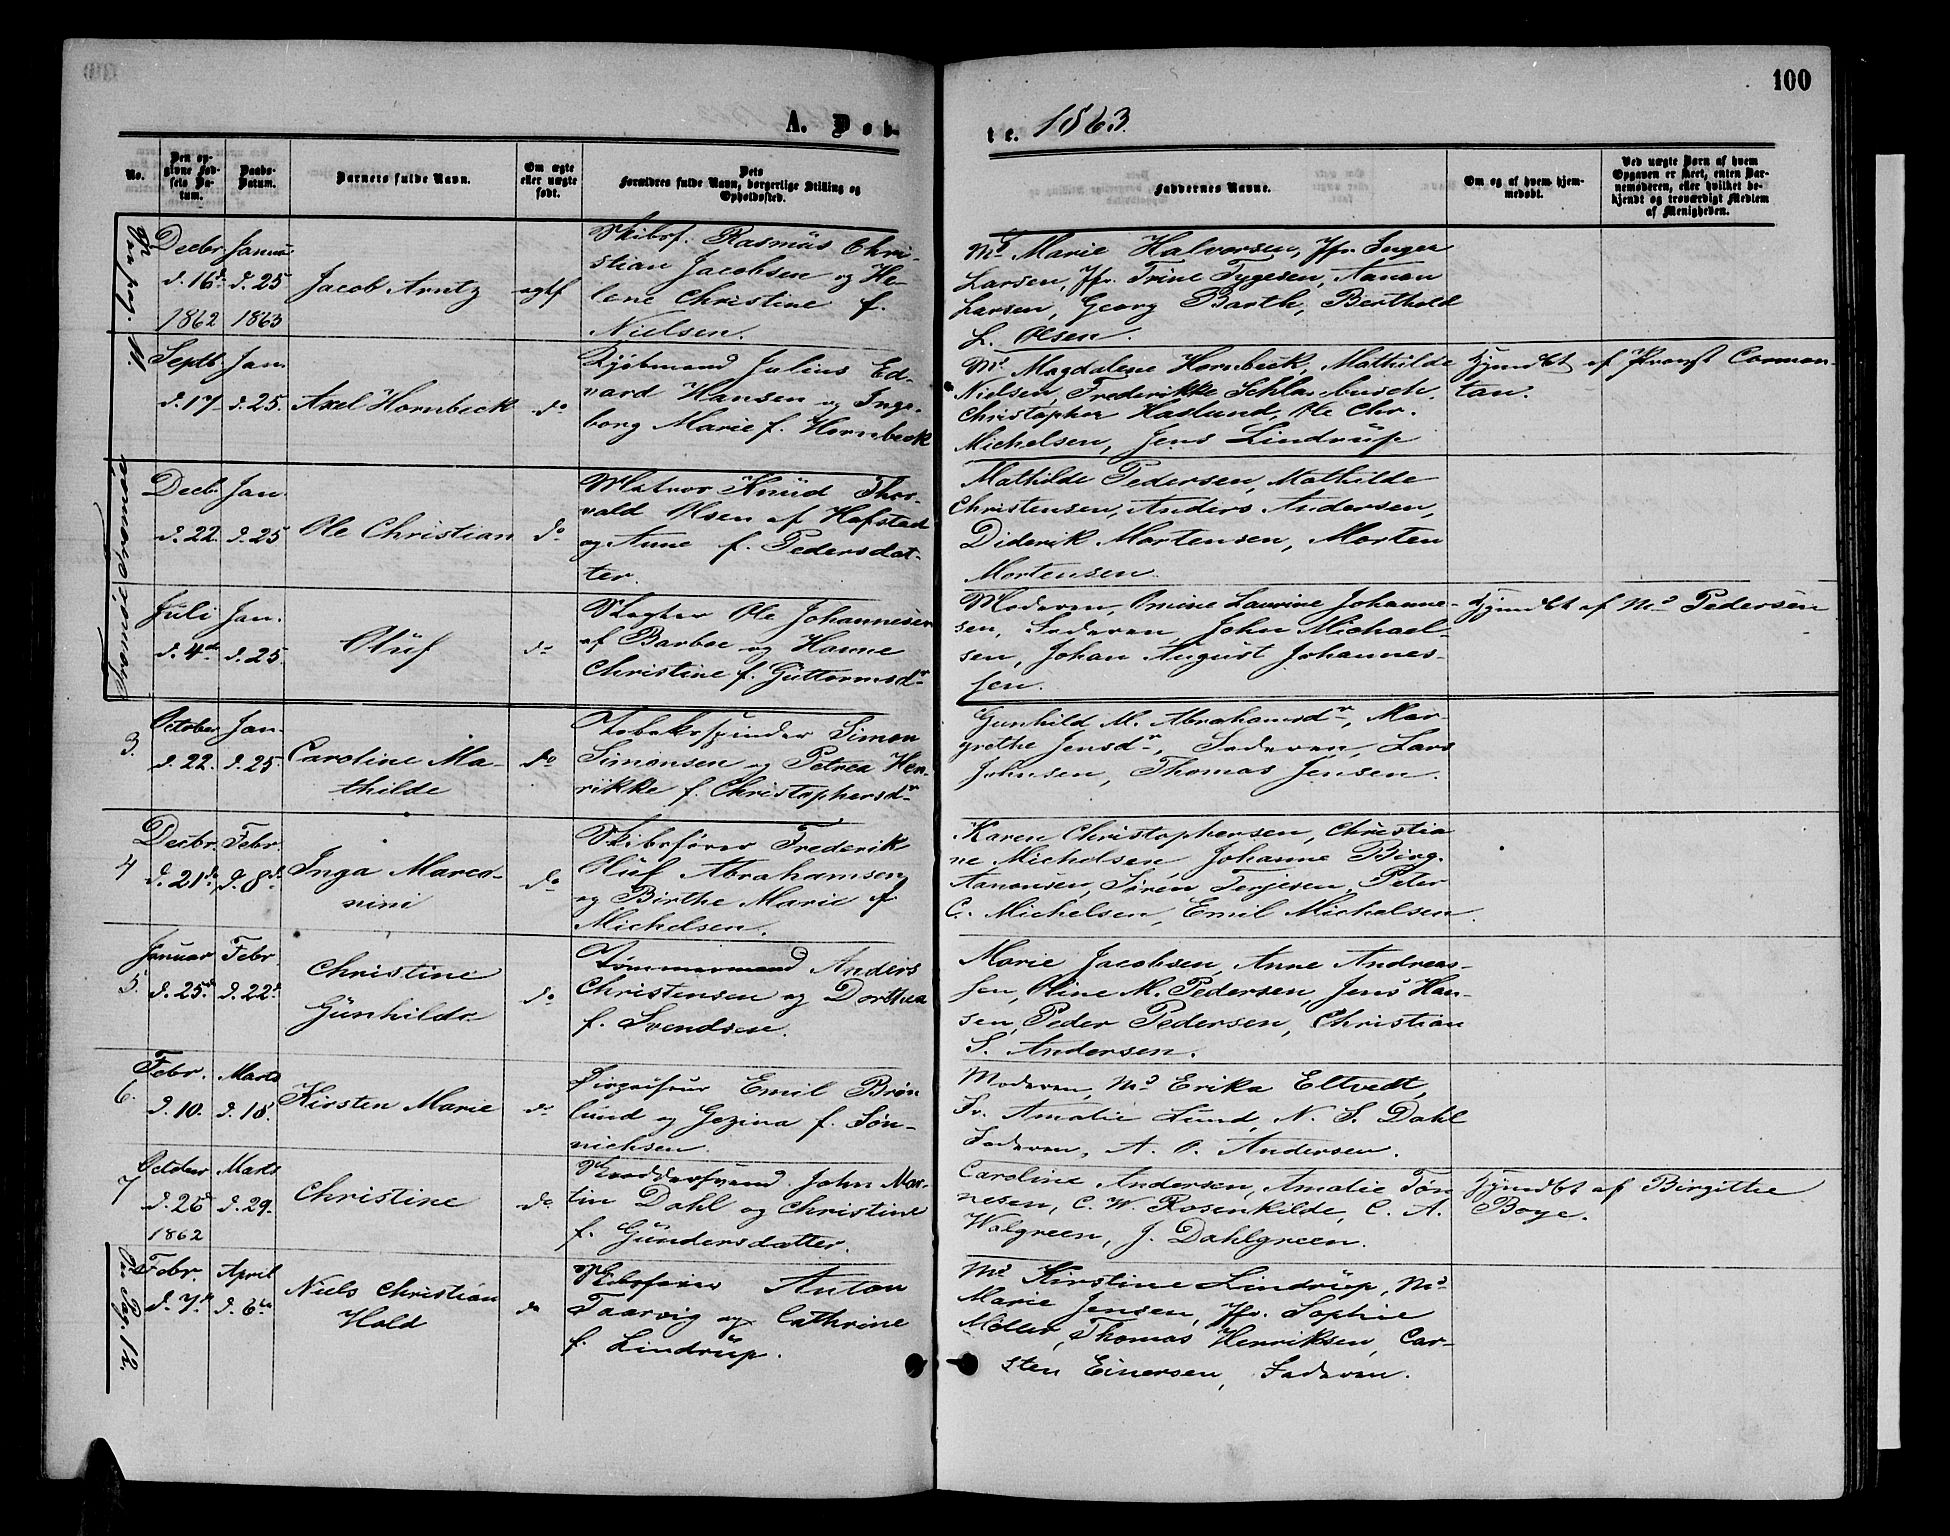 100
A. Døb-
te. 1863.
No.
Den op-
givne Fød-
sels Da-
tum.
Daabs-
Datum.
Barnets fulde Navn.
Om ægte
eller uægte
født.
Dets
Forældres fulde Navn, borgerlige Stilling og
Opholdssted.
Faddernes Navne.
Om og af hvem hjem-
medøbt.
Ved uægte Børn af hvem
Opgaven er skeet, enten Bar-
nemoderen, eller hvilket be-
kjendt og troværdigt Medlem
af Menigheden.
Decbr
d. 16d
1862
Januar
d. 25
1863
Jacob Arntz
ægtf
Skibsf. Rasmus Chri-
stian Jacobsen og He-
lene Christine f.
Nielsen.
Md Marie Halvorsen, Jfr. Inger
Larsen, Jfr. Trine Tygesen, Aanon
Larsen, Georg Barth, Berthold
L. Olsen.
Septb.
d. 17
Jan.
d. 25.
Axel Hornbeck
do
Kjøbmand Julius Ed-
vard Hansen og Inge-
borg Marie f. Hornbeck
Md Magdalene Hornbeck, Mathilde
Nielsen, Frederikke Schlanbusch,
Christopher Haslund, Ole Chr.
Michelsen, Jens Lindrup
Hjemdbt af Provst Comon-
tan.
Decb.
d. 22.
Jan.
d. 25
Ole Christian
do
Matros Knud Thor-
vald Olsen af Hafstad
og Anne f. Pedersdat-
ter.
Mathilde Pedersen, Mathilde
Christensen, Anders Andersen,
Diderik Mortensen, Morten
Mortensen.
Juli
d. 4de
Jan.
d. 25.
Oluf
do
Slagter Ole Johannesen
af Barboe og Hanne
Christine f. Guttormsdr
Moderen, Omine Laurine Johanne-
sen, Faderen, John Michael-
sen, Johan August Johannes-
sen.
Hjemdbt af Md Pedersen
3.
October
d. 22.
Jan.
d. 25.
Caroline Ma-
thilde
do
Tobaksspinder Simon
Simonsen og Petrea Hen-
rikke f. Christophersdr
Gunhild M. Abrahamsdr, Mar-
grethe Jensdr, Faderen, Lars
Johnsen, Thomas Jensen.
4
Decbr.
d. 21de
Febr.
d. 8d.
Inga Marco-
nini
do
Skibsfører Frederik
Oluf Abrahamsen
og Birthe Marie f.
Michelsen.
Karen Christophersen, Christia
ne Michelsen, Johanne Birg.
Aanonsen, Søren Terjesen, Peter
C. Michelsen, Emil Michalsen.
5.
Januar
d. 25d
Febr.
d. 22d
Christine
Gunhilde
do
Tømmermand Anders
Christensen og Dorthea
f. Svendsen.
Marie Jacobsen, Anne Andreas-
sen, Oline M. Pedersen, Jens Han-
sen, Peder Pedersen, Christian
S. Andersen.
6.
Febr.
d. 10.
Marts
d. 18.
Kirsten Marie
do
Emil Brøn
lund og Gezina f. Søn-
nichsen.
Moderen, Md Erika Eltvedt,
Fr. Amalie Lund, N. S. Dahl
Faderen, A. O. Andersen.
7
October
d. 26d
1862
Marts
d. 29.
Christine
do
Skræddersvend John Mar-
tin Dahl og Christine
f. Gundersdatter.
Caroline Andersen, Amalie Tøn
nesen, C. W. Rosenkilde, C. A.
Walgreen, J. Dahlgreen.
Hjemdbt af Birgitthe
Boye.
Febr.
d. 7d
April
d. 6te
Niels Christian
Hold
do
Skibsfører Anton
Taarvig og Cathrine
f. Lindrup.
Md Kirstine Lindrup, Md
Marie Jensen, Jfr. Sophie
Møller, Thomas Henriksen, Car-
sten Einersen, Faderen.